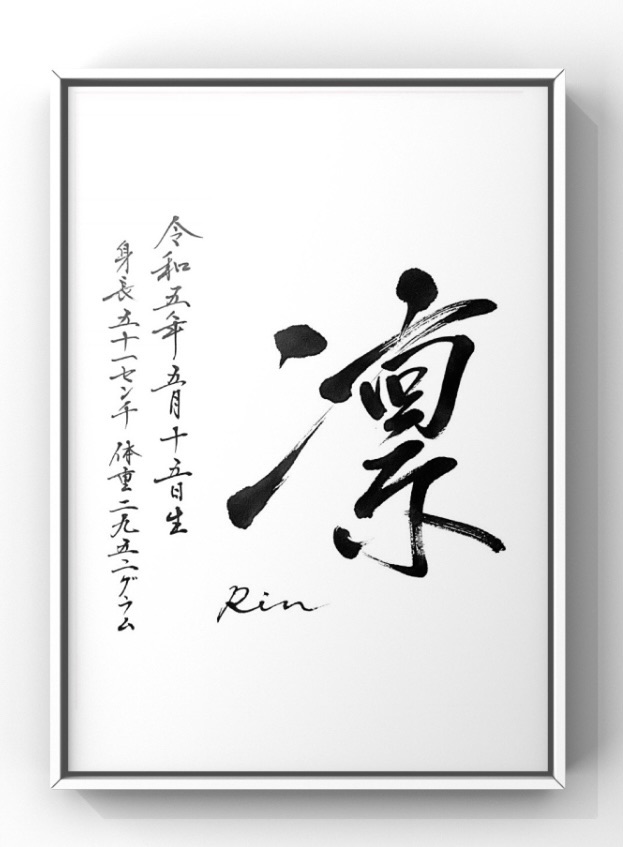 凛
Rin
令和五年五月十五日生
身長五十一センチ 体重二九五二グラム